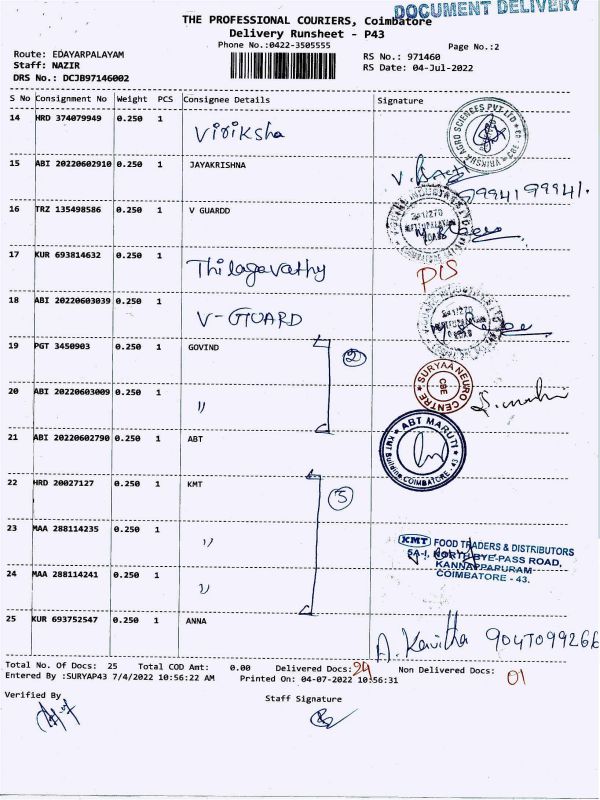 DOCUMENT DELIVERY
THE PROFESSIONAL COURIERS, Coimbatore
Delivery Runsheet - P43
Phone No.:0422-3505555
Page No.:2
Route: EDAYARPALAYAM
RS No.: 971460
Staff: NAZIR
RS Date: 04-Jul-2022
DRS No.: DCJB97146002
S No Consignment No Weight PCS Consignee Details Signature
14 HRD 374079949 0.250 1 Viriksha
15 ABI 20220602910 0.250 1 JAYAKRISHNA
9994199941.
16 TRZ 135498586 0.250 1 V GUARDD
17 KUR 693814632 0.250 1 Thilagavathy
18 ABI 20220603039 0.250 1 V-GUARD
19 PGT 3450903 0.250 1 GOVIND 2
20 ABI 20220603009 0.250 1 "
SURYAA NEURO CENTRE
CBE
21 ABI 20220602790 0.250 1 ABT
ABT MARUTI
KMT Building COIMBATORE - 43
22 HRD 20027127 0.250 1 KMT 5
23 MAA 288114235 0.250 1 "
KMT FOOD TRADERS & DISTRIBUTORS
5A-I, NORTH BYE-PASS ROAD,
KANNAPPAPURAM
COIMBATORE - 43.
24 MAA 288114241 0.250 1 "
25 KUR 693752547 0.250 1 ANNA
A. Kavitha 9047099266
Total No. Of Docs: 25 Total COD Amt: 0.00 Delivered Docs: 24 Non Delivered Docs: 01
Entered By :SURYAP43 7/4/2022 10:56:22 AM Printed On: 04-07-2022 10:56:31
Verified By Staff Signature